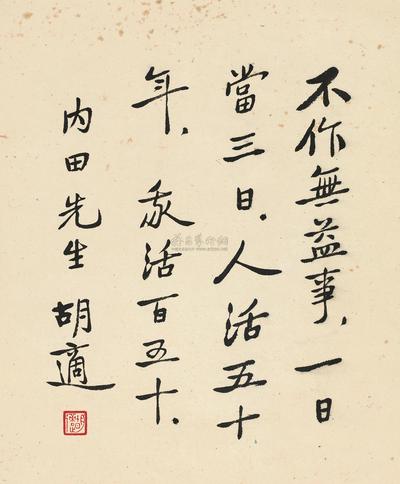 不作無益事，一日
當三日，人活五十
年，我活百五十。
内田先生 胡適